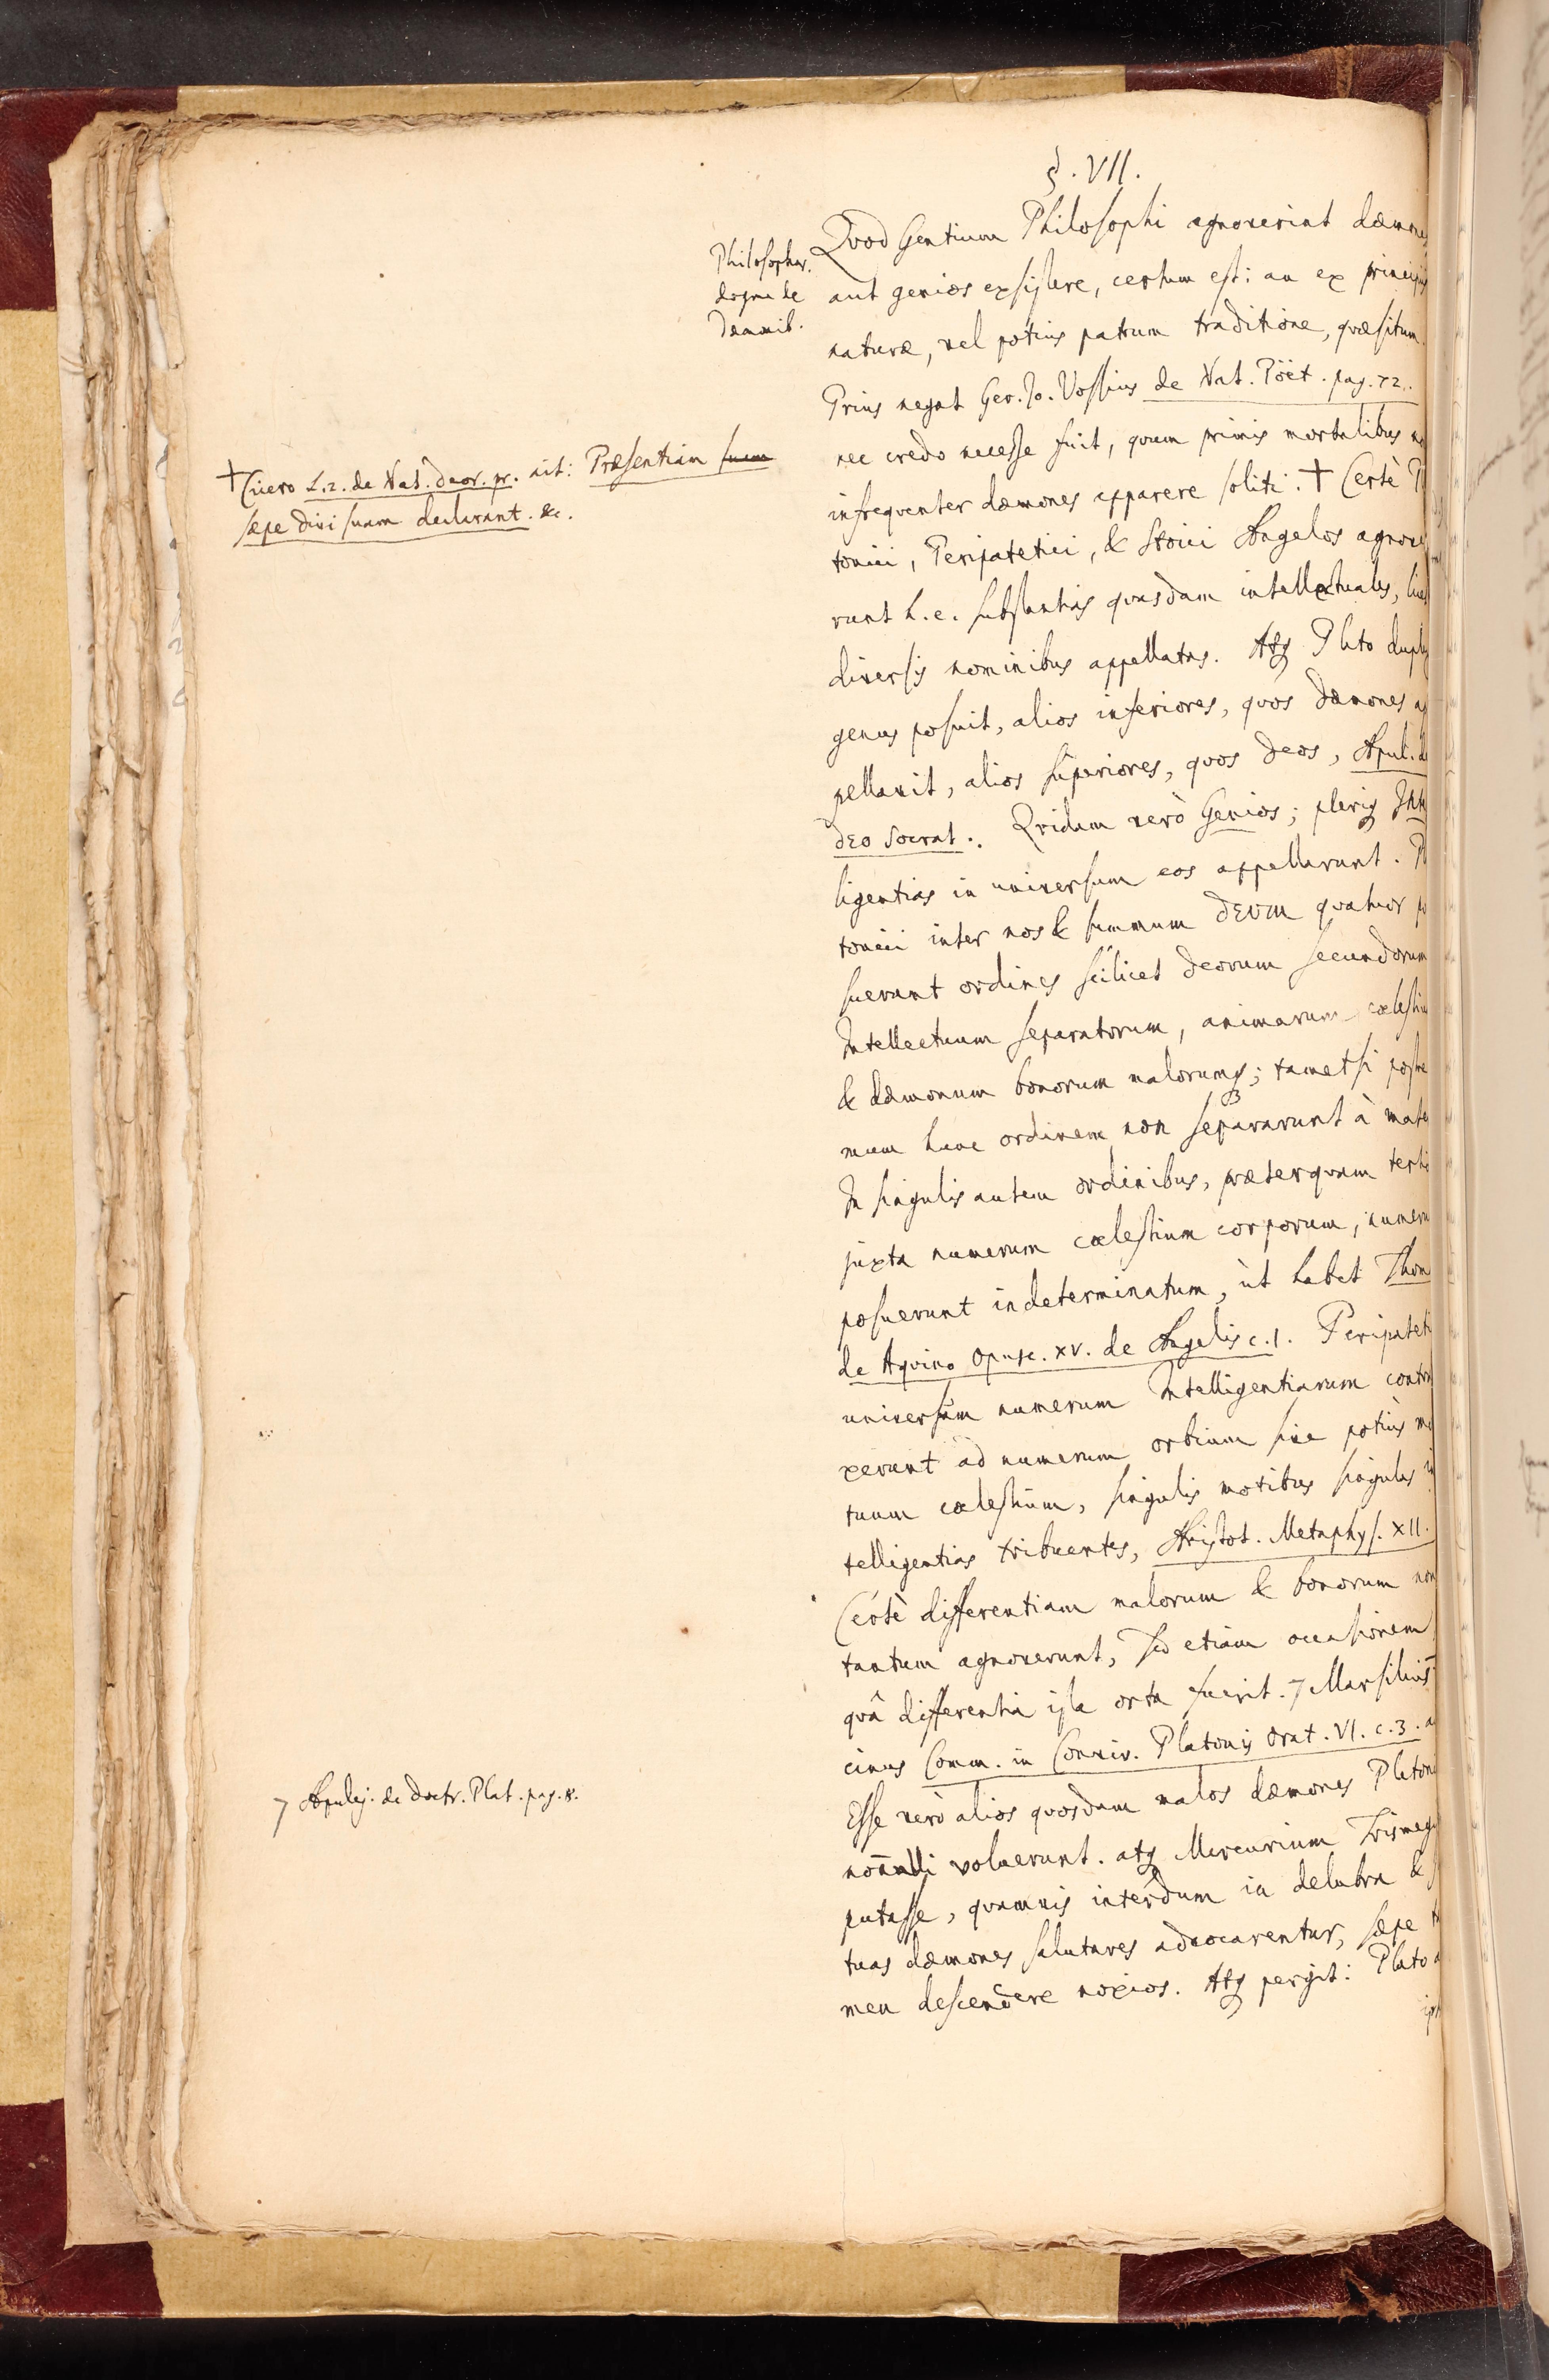 §. VII.
Philosophor.
dogma de
Dæmonib.
Qvod Gentium Philosophi agnoverint dæmones
aut genios existere, certum est: an ex principiis
naturæ, vel potius patrum traditione, qvæsitum.
Prius negat Ger. Jo. Vossius de Nat. Poët. pag. 72.
nec credo necesse fuit, qvum primis mortalibus
infreqventer dæmones apparere soliti. † Certè
tonici, Peripatetici, & Stoici Angelos agnove
runt h. e. substantias qvasdam intellectuales,
diversis nominibus appellatas. Atq Plato
genus posuit, alios inferiores, qvos dæmones ap
pellavit, alios superiores, qvos Deos, Apul. de
DEO Socrat. Qvidam verò Genios; pleriq
ligentias in universum eos appellarunt.
tonici inter nos & summum DEUM quatuor po
suerunt ordines scilicet Deorum secundorum
Intellectuum separatorum, animarum cœlestium
& dæmonum bonorum malorumq; tametsi postre
mum hunc ordinem non separarunt à mate
In singulis autem ordinibus, præterqvam
juxta numerum cœlestium corporum, numerum
posuerunt indeterminatum, ùt habet Thom
de Aqvino Opusc. XV. de Angelis c. 1. Peripateti
universum numerum Intelligentiarum contra
xerunt ad numerum orbium sive potius mo
tuum cœlestium, singulis motibus singulas in
telligentias tribuentes, Aristot. Metaphys. XII.
Certè differentiam malorum & bonorum non
tantum agnoverunt, sed etiam occasionem
qvâ differentia ista orta fuerit. 7 Marsilius
cinus Comm. in Conviv. Platonis Orat. VI. c. 3.
Esse verò alios qvosdam malos dæmones Platoni
nonnulli voluerunt. atq Mercurium Trismegi
putasse, qvamvis interdum in delubra &
tuas dæmones salutares advocarentur, sæpe ta
men descendere noxios. Atq pergit: Plato
† Cicero L. 2. de Nat. Deor. pr. ait: Præsentiam suam
sæpe divi suam declarant. &c.
7 Apulej. de Doctr. Plat. pag. 8.